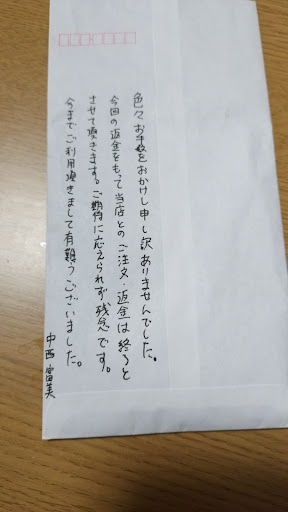 色々お手数をおかけし申し訳ありませんでした。
今回の返金をもって当店とのご注文・返金は終りと
させて頂きます。ご期待に応えられず残念です。
今までご利用頂きまして有難うございました。
中西富美